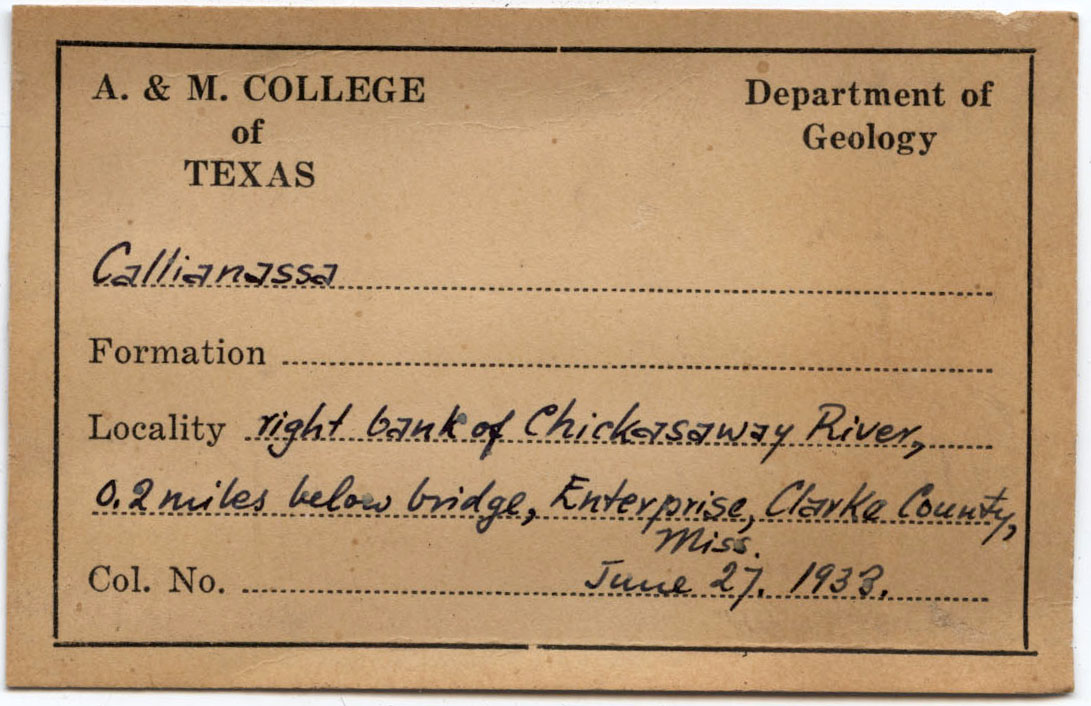 A. & M. COLLEGE
of
TEXAS
Department of
Geology
Callianassa
Formation
Locality right bank of Chickasaway River,
0.2 miles below bridge, Enterprise, Clarke County,
Miss.
Col. No. June 27. 1933.